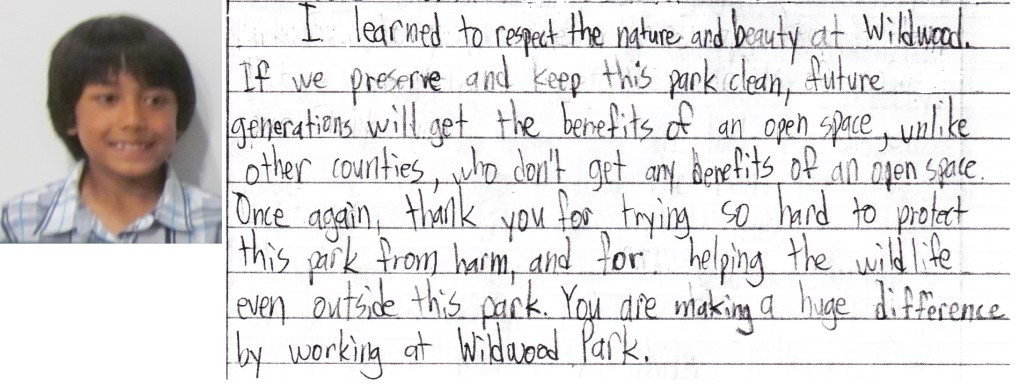 I learned to respect the nature and beauty at Wildwood.
If we preserve and keep this park clean, future
generations will get the benefits of an open space, unlike
other counties, who don't get any benefits of an open space.
Once again, thank you for trying so hard to protect
this park from harm, and for helping the wildlife
even outside this park. You are making a huge difference
by working at Wildwood Park.